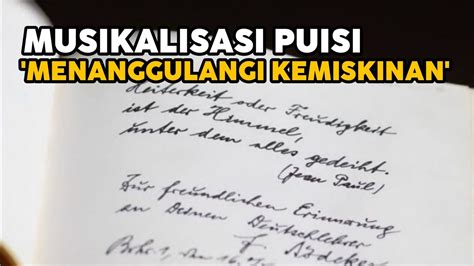 MUSIKALISASI PUISI
'MENANGGULANGI KEMISKINAN'
Heiterkeit oder Freudigkeit
ist der Himmel,
unter dem alles gedeiht.
(Jean Paul)
Zur freundlichen Erinnerung
an Deinen Deutschlehrer
F.